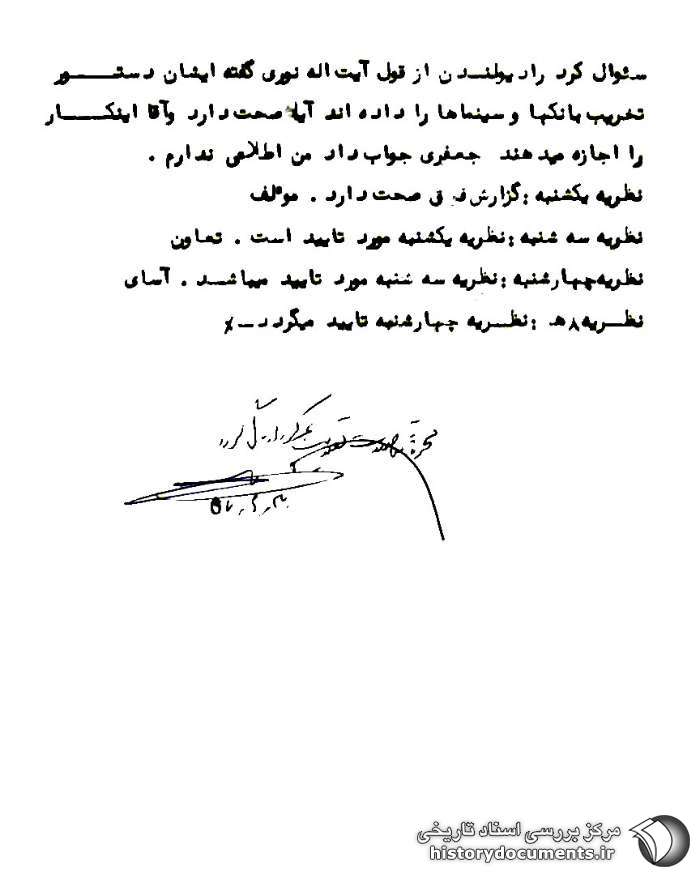 سئوال کرد رادیولندن از قول آیت اله نوری گفته ایشان دستـــور
تخریب بانکها و سینماها را داده اند آیا صحت دارد وآقا اینکـــار
را اجازه میدهند جعفری جواب داد من اطلاعی ندارم .
نظریه یکشنبه :گزارش فوق صحت دارد . مولف
نظریه سه شنبه :نظریه یکشنبه مورد تایید است . تعاون
نظریه چهارشنبه :نظریه سه شنبه مورد تایید میباشــد . آسای
نظــریه ۸ه‍ :نظــریه چهارشنبه تایید میگردد ـ٪
مرکز بررسی اسناد تاریخی
historydocuments.ir